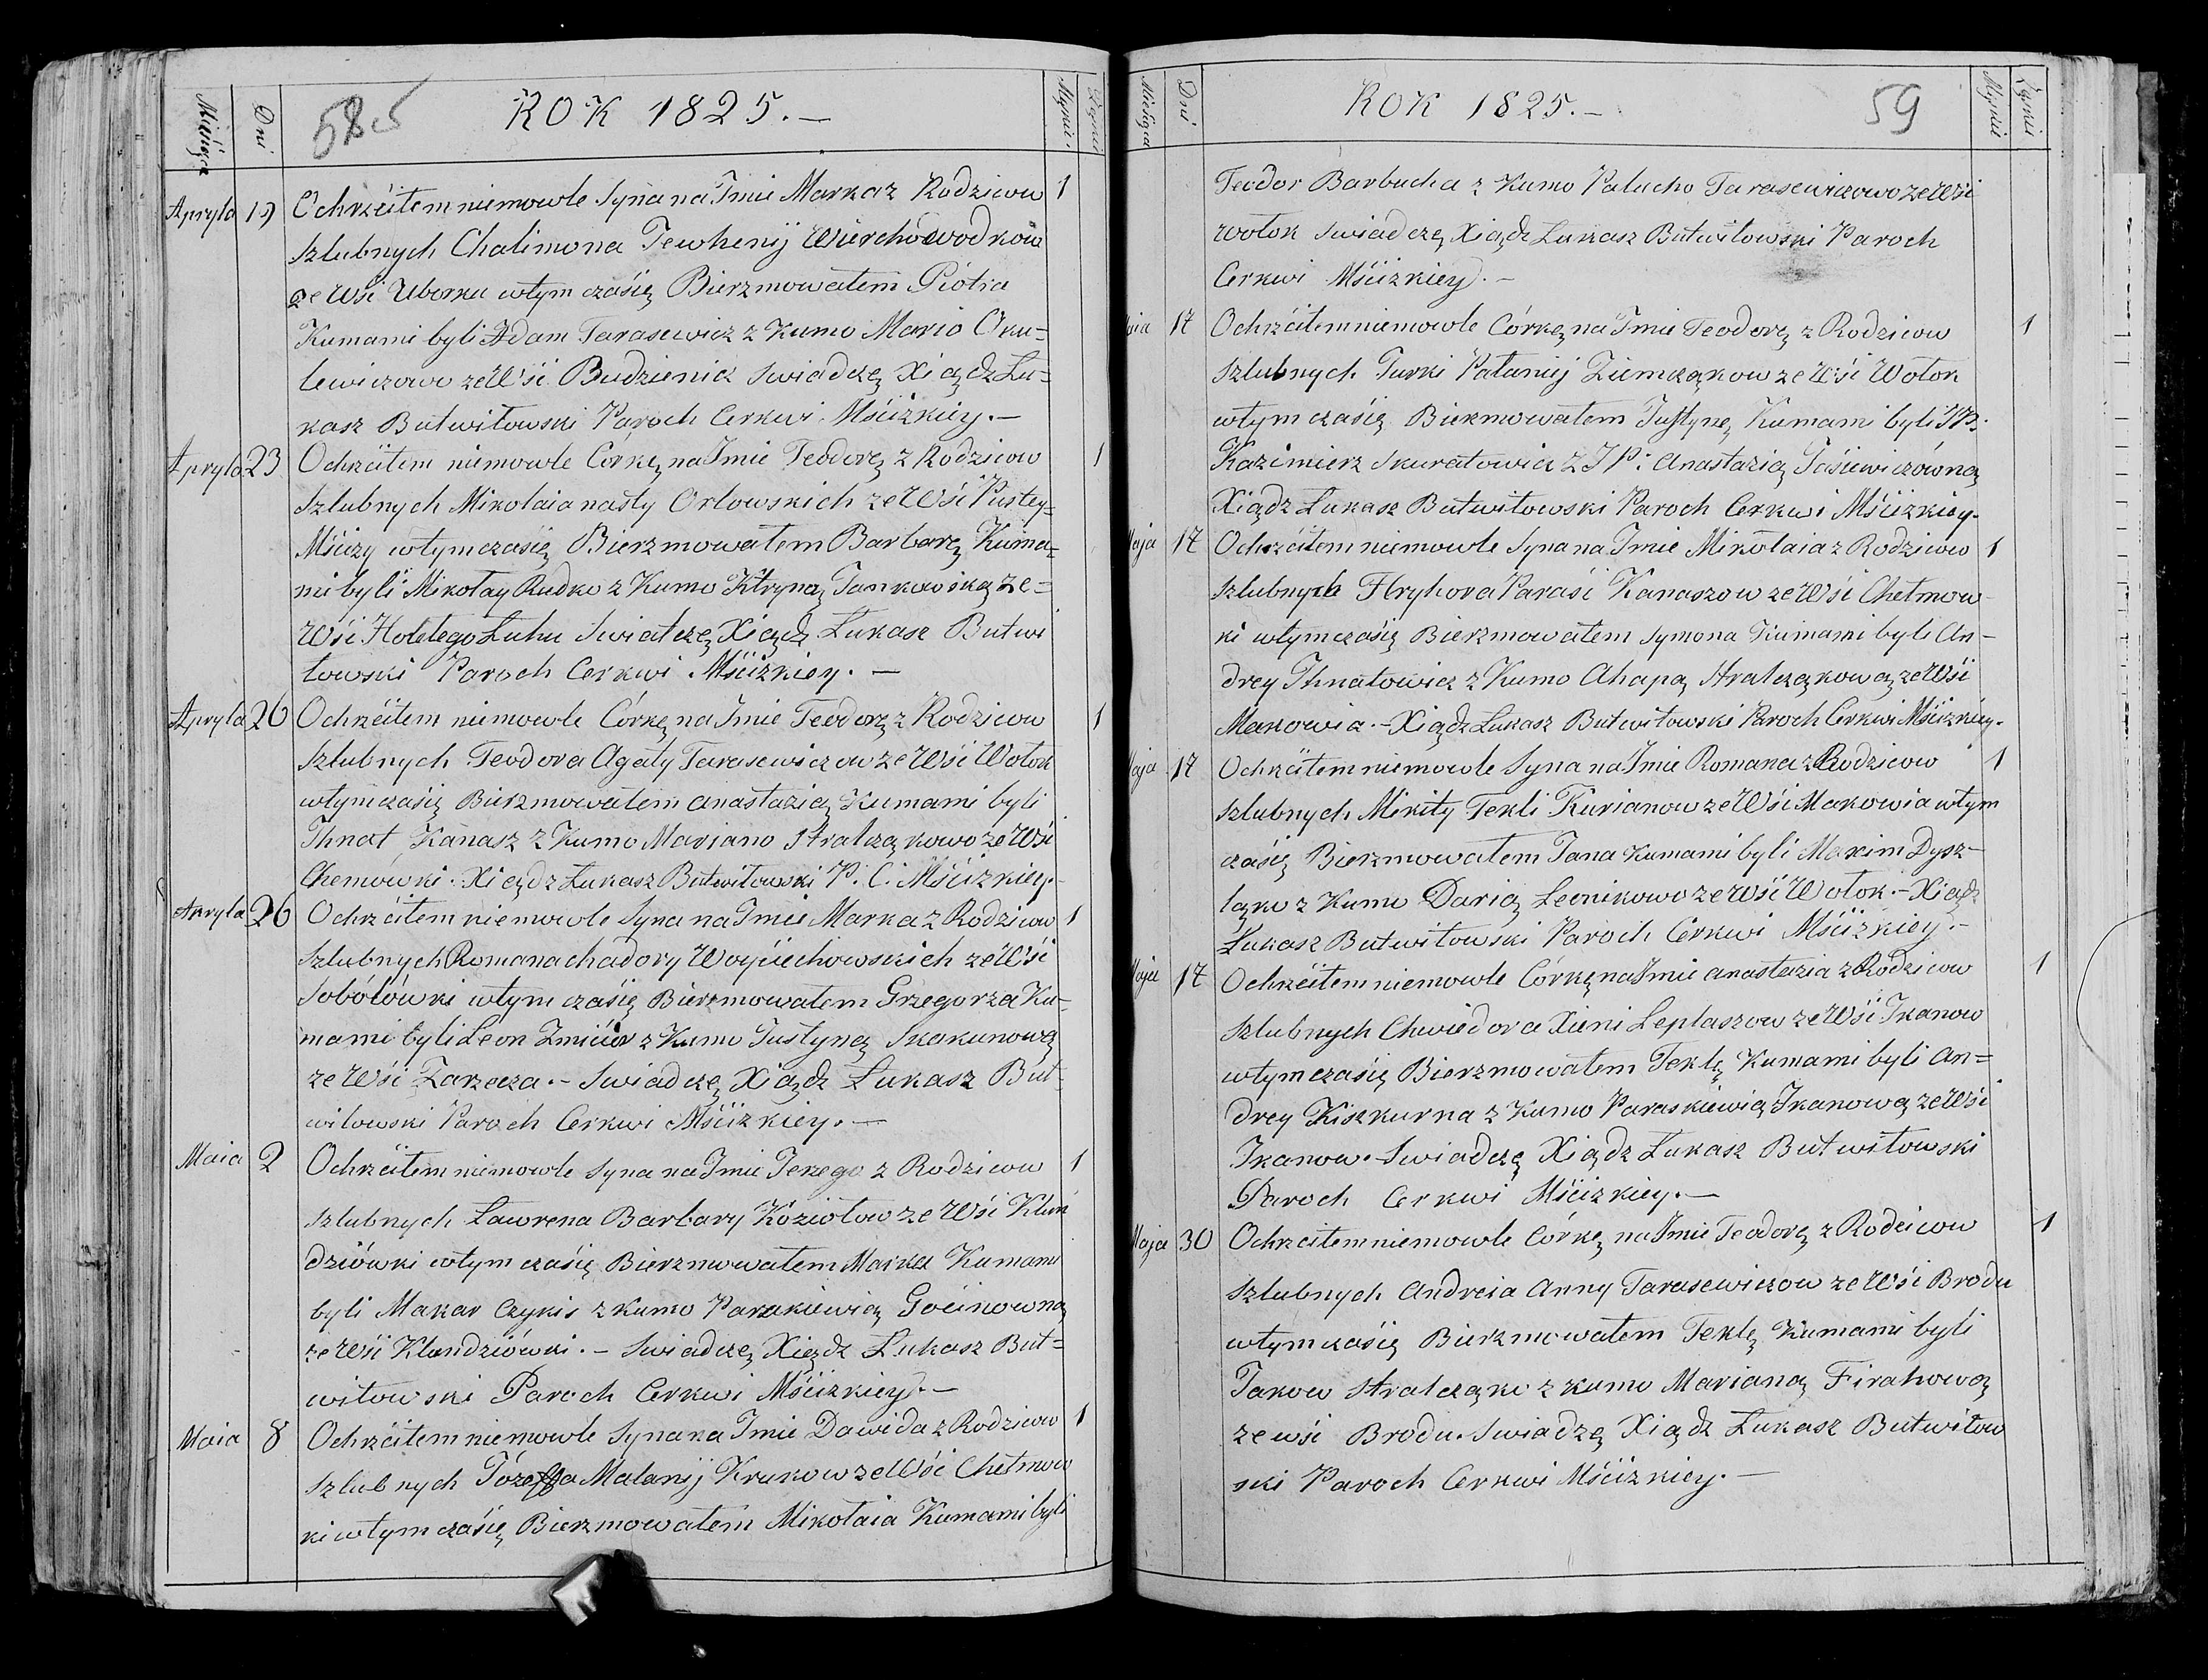 Miesiąca Dni 58 ROK 1825.— Męzkie Żeńskie
Apryla 19 Ochrzciłem niemowle Syna na Imie Marka z Rodzicow 1
szlubnych Chalimona Tewhenij Wierchówodków
ze Wsi Uborku wtym czasię Bierzmowałem Piotra
Kumami byli Adam Tarasewicz z Kumo Mario Oku=
lewiczowo ze Wsi Budzienicz Swiadczę Xiądz Łu=
kasz Butwiłowski Paroch Cerkwi Mściżkiey.—
Apryla 23 Ochrzciłem niemowle Córkę na Imie Teodorę z Rodzicow 1
szlubnych Mikołaia nasty Orłowskich ze Wśi Pustey=
Mściży wtym czasię Bierzmowałem Barbarę Kuma=
mi byli Mikołay Rudko z Kumo Ktryną Jankowską ze=
Wśi Hołełego Łuhu Swiatczę Xiądz Łukasz Butwi
łowski Paroch Cerkwi Mściżkiey.—
Apryla 26 Ochrzciłem niemowle Córkę na Imie Teodorę z Rodzicow 1
szlubnych Teodora Agaty Tarasewiczow ze Wśi Wołok
wtym czasię Bierzmowałem anastazią Kumami byli
Ihnat Kanasz z Kumo Mariano Strałcząkowo ze Wśi
Chemówki. Xiądz Łukasz Butwiłowski P. C. Mściżkiey.
Apryla 26 Ochrzciłem niemowle Syna na Imie Marka z Rodzicow 1
szlubnych Romana chadory Woyciechowskich ze Wśi
Sobółówki wtym czasię Bierzmowałem Grzegorza Ku=
mami byli Leon Zmićior z Kumo Justyną Skakunową
ze Wśi Zarzecza.— Swiadczę Xiądz Łukasz But=
wiłowski Paroch Cerkwi Mściżkiey.—
Maia 2 Ochrzciłem niemowle Syna na Imie Jerzego z Rodzicow 1
szlubnych Ławrena Barbary Koziołow ze Wśi Klun
dziówki wtym czasię Bierzmowałem Marka Kumami
byli Makar Czykis z Kumo Parakiewią Gocinowną
ze Wśi Klundziówki.— Swiadczę Xiędz Łukasz But=
wiłowski Paroch Cerkwi Mściżkiey.—
Maia 8 Ochrzciłem niemowle Syna na Imie Dawida z Rodzicow 1
szlubnych Józeffa Małanij Krukow ze Wśi Chełmow
ki wtym czasię Bierzmowałem Mikołaia Kumami byli
Miesiąca Dni ROK 1825.— 59 Męzkie Żeńskie
Teodor Barbucha z Kumo Pałucho Tarasewiczowo ze Wśi
Wołok Swiadczę Xiądz Łukasz Butwiłowski Paroch
Cerkwi Mściżkiey.—
Maia 17 Ochrzciłem niemowle Córkę na Imie Teodorę z Rodzicow 1
szlubnych Jurki Pałanij Ziemcząkow ze Wśi Wołok
wtym czasię Bierzmowałem Justynę Kumami byli JP:
Kazimierz Skuratowicz z JP: Anastazią Jaśiewiczówną
Xiądz Łukasz Butwiłowski Paroch Cerkwi Mściżkiey.
Maja 17 Ochrzciłem niemowle Syna na Imie Mikołaia z Rodzicow 1
szlubnych Hryhora Paraśi Kanaszow ze Wśi Chełmow
ki wtym czasię Bierzmowałem Symona Kumami byli An—
drey Ihnatowicz z Kumo Ahapą Strałcząkową ze Wśi
Makowia.— Xiądz Łukasz Butwiłowski Paroch Cerkwi Mściżkiey.
Maja 17 Ochrzciłem niemowle Syna na Imie Romana z Rodzicow 1
szlubnych Mikity Tekli Kurianow ze Wśi Makowia wtym
czasię Bierzmowałem Jana Kumami byli Maxim Dysz—
ląko z Kumo Darią Leonikowo ze Wśi Wołok.— Xiądz
Łukasz Butwiłowski Paroch Cerkwi Mściżkiey.—
Maja 17 Ochrzciłem niemowle Córkę na Imie anastazia z Rodzicow 1
szlubnych Chwiedora Xieni Leplaszow ze Wśi Ikanow
wtym czasię Bierzmowałem Teklę Kumami byli An=
drey Kiszkurna z Kumo Paraskiewią Ikanową ze Wśi
Ikanow. Swiadczę Xiądz Łukasz Butwiłowski
Paroch Cerkwi Mściżkiey.—
Maja 30 Ochrzciłem niemowle Córkę na Imie Teodorę z Rodzicow 1
szlubnych Andreia Anny Tarasewiczow ze Wśi Brodu
wtym czasię Bierzmowałem Teklę Kumami byli
Jakow Strałcząko z Kumo Marianą Firahową
ze wśi Brodu. Swiadzę Xiądz Łukasz Butwiłow
ski Paroch Cerkwi Mściżkiey.—